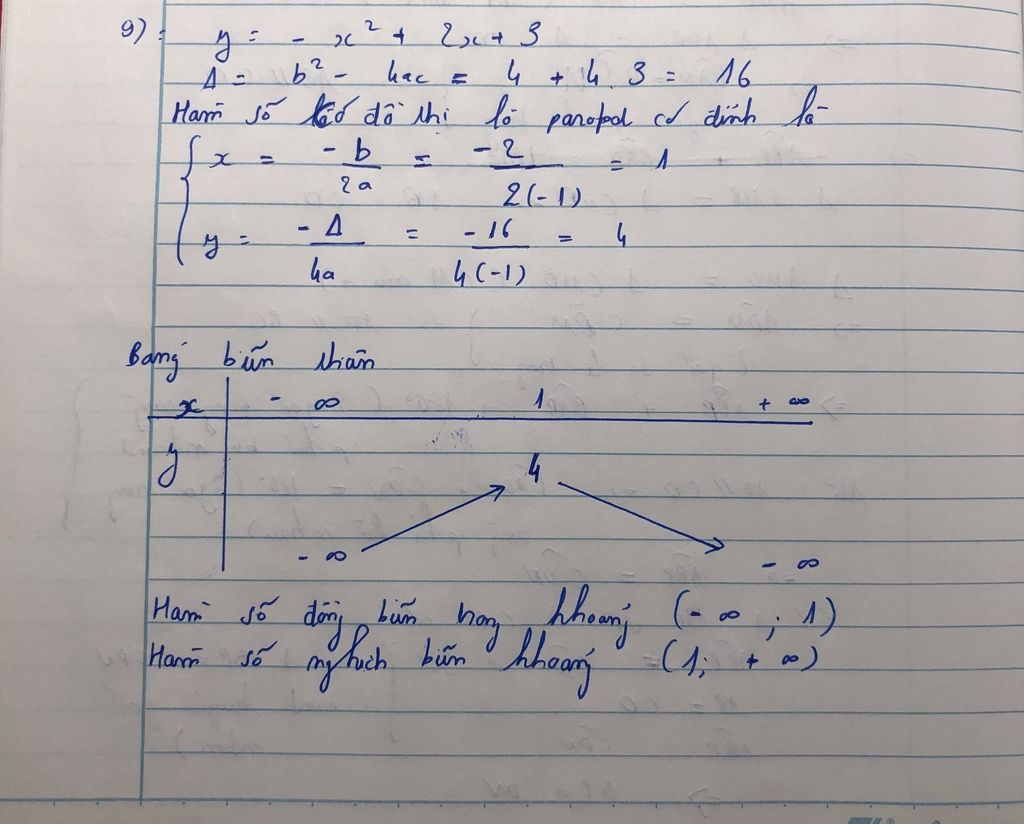 9): y = - x² + 2x + 3
Δ = b² - 4ac = 4 + 4.3 = 16
Hàm số có đồ thị là parapol có đỉnh là
x = -b/2a = -2/2(-1) = 1
y = -Δ/4a = -16/4(-1) = 4
Bảng biến thiên
x - ∞ 1 + ∞
y 4
- ∞ - ∞
Hàm số đồng biến trong khoảng (- ∞ ; 1)
Hàm số nghịch biến khoảng (1; + ∞)